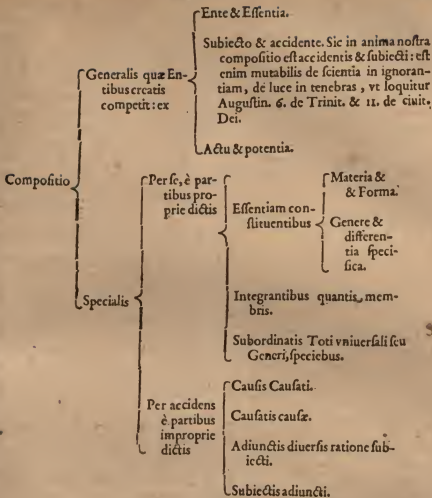 Compoſitio
Generalis quæ En-
tibus creatis
competit: ex
Ente & Eſſentia.
Subiecto & accidente. Sic in anima noſtra
compoſitio eſt accidentis & ſubiecti: eſt
enim mutabilis de ſcientia in ignoran-
tiam, de luce in tenebras, vt loquitur
Auguſtin. 6. de Trinit. & 11. de ciuit.
Dei.
Actu & potentia.
Specialis
Per ſe, è par-
tibus pro-
prie dictis
Eſſentiam con-
ſtituentibus
Materia &
& Forma.
Genere &
differen-
tia ſpeci-
fica.
Integrantibus quantis, mem-
bris.
Subordinatis Toti vniuerſali ſeu
Generi, ſpeciebus.
Per accidens
è partibus
improprie
dictis
Cauſis Cauſati.
Cauſatis cauſæ.
Adiunctis diuerſis ratione ſub-
iecti.
Subiectis adiuncti.